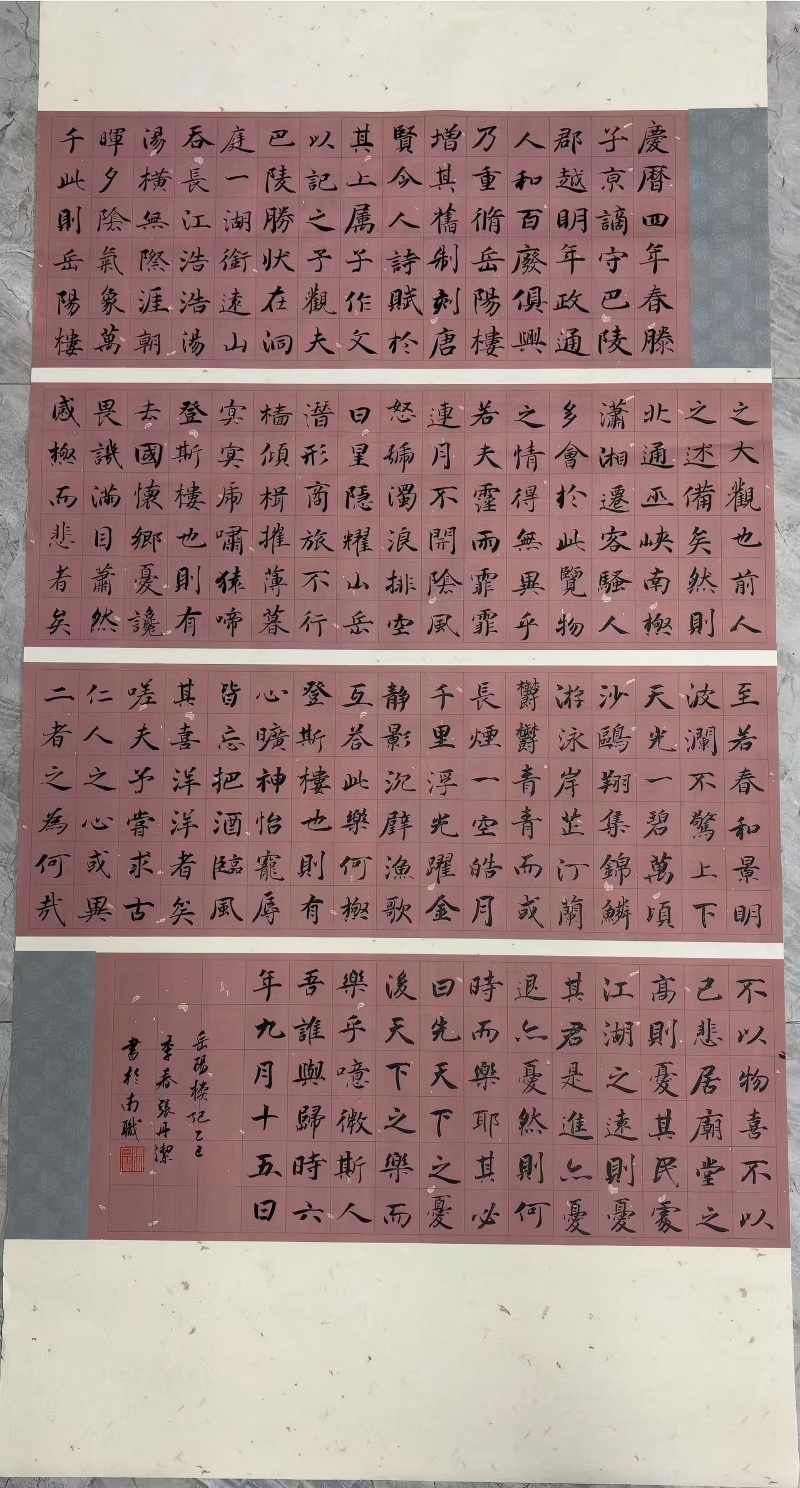 慶暦四年春滕
子京謫守巴陵
郡越明年政通
人和百廢俱興
乃重脩岳陽樓
增其舊制刻唐
賢今人詩賦於
其上属予作文
以記之予觀夫
巴陵勝状在洞
庭一湖銜遠山
吞長江浩浩湯
湯橫無際涯朝
暉夕陰氣象萬
千此則岳陽樓
之大觀也前人
之述備矣然則
北通巫峡南極
瀟湘遷客騷人
多會於此覽物
之情得無異乎
若夫霪雨霏霏
連月不開陰風
怒號濁浪排空
日星隱耀山岳
潛形商旅不行
檣傾楫摧薄暮
冥冥虎嘯猿啼
登斯樓也則有
去國懷鄉憂讒
畏譏滿目蕭然
感極而悲者矣
至若春和景明
波瀾不驚上下
天光一碧萬頃
沙鷗翔集錦鱗
游泳岸芷汀蘭
鬱鬱青青而或
長煙一空皓月
千里浮光躍金
静影沉璧漁歌
互答此樂何極
登斯樓也則有
心曠神怡寵辱
皆忘把酒臨風
其喜洋洋者矣
嗟夫予嘗求古
仁人之心或異
二者之為何哉
不以物喜不以
己悲居廟堂之
高則憂其民處
江湖之遠則憂
其君是進亦憂
退亦憂然則何
時而樂耶其必
曰先天下之憂
後天下之樂而
樂乎噫微斯人
吾誰與歸時六
年九月十五日
岳陽樓記乙巳
季春張丹潔
書於南職